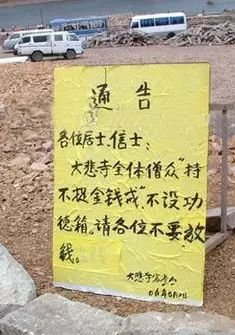 通告
各位居士、信士:
大悲寺全体僧众“持
不捉金钱戒”不设功
德箱,请各位不要“放
钱。
大悲寺客堂